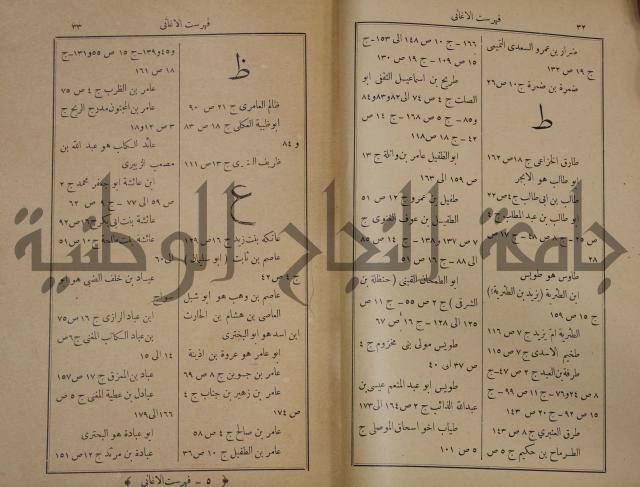 ٣٢
فهرست الاغانى
ضرار بن عمرو السعدى التميمى
ج ١٩ ص ١٣٢
ضمرة بن ضمرة ج ١٠ ص ٢٦
ط
طارق الخزاعى ج ١٨ ص ١٦٢
ابو طالب هو الابجر
طالب بن ابى طالب ج ٤ ص ٢٢
ابو طالب بن عبد المطلب ج
ص ٢٥ - ج ٨ ص ٤٨ - ج ١٧ ص
٢٨
طاوس هو طويس
ابن الطثرية (يزيد بن الطثرية)
ج ١٥ ص ١٥٩
الطثرية ام يزيد ج ٧ ص ١١٦
طخيم الاسدى ج ٧ ص ١١٥
طرفة بن العبد ج ٢ ص ٤٧ - ج
٨ ص ٢٤ و٧٦ - ج ١١ ص ٩٩ - ج
١٥ ص ٩٢ - ج ٢٠ ص ١٤٣
طرق العنبرى ج ٨ ص ١٤٣
الطرماح بن حكيم ج ٥ ص
١٦٦ - ج ١٠ ص ١٤٨ الى ١٥٣ - ج
١٥ ص ١٠٩ - ج ١٩ ص ١٣٠
طريح بن اسماعيل الثقفى ابو
الصلت ج ٤ ص ٧٤ الى ٨٢ و٨٣ و٨٤
و٨٥ - ج ٥ ص ١٦٨ - ج ١٤ ص
٤٢ - ج ١٨ ص ١١٨
ابو الطفيل عامر بن واثلة ج ١٣
ص ١٥٩ الى ١٦٣
طفيل بن عمرو ج ١٢ ص ٥١
الطفيل بن عوف الغنوى ج
٧ ص ١٣٧ و١٣٨ - ج ١٤ ص ٨٥
الى ٨٨ - ج ١٦ ص ٥١
ابو الطمحان القينى (حنظلة بن
الشرقى) ج ٢ ص ٥٥ - ج ١١ ص
١٢٥ الى ١٢٨ - ج ١٦ ص ٦٧
طويس مولى بنى مخزوم ج ٤
ص ٣٧ الى ٤٠
طويس ابو عبد المنعم عيسى بن
عبد الله الذائب ج ٢ ص ١٦٤ الى ١٧٣
طياب اخو اسحاق الموصلى ج
٥ ص ١٠١
فهرست الاغانى
٣٣
ظ
ظالم العامرى ج ٢١ ص ٩٠
ابو ظبية العكلى ج ١٨ ص ٨٣
و ٨٤
ظريف ج ١٣ ص ١١١
ع
عاتكة بنت زيد ج ١٦ ص ١٢٩
عاصم بن ثابت (ابو سليمان)
ج ٤ ص ٤٢
عاصم بن وهب هو ابو شبل
العاصى بن هشام بن الحارث
ابن اسد هو ابو البخترى
ابو عامر هو عروة بن اذينة
عامر بن جوين ج ٨ ص ٦٩
عامر بن زهير بن جناب ج ٤
ص ١٧٤
عامر بن صالح ج ٤ ص ٥٨
عامر بن الطفيل ج ١٠ ص ٣٦
و٤٥ و١٣٩ - ج ١٥ ص ٥٥ و١٣١ - ج
١٨ ص ١٦١
عامر بن الظرب ج ٤ ص ٧٥
عامر بن المجنون مدرج الريح ج
٣ ص ١٢ و١٨
عائد الكلب هو عبد الله بن
مصعب الزبيرى
ابن عائشة ابو جعفر محمد ج ٢
ص ٥٩ الى ٧٧ - ج ٩ ص ٦٢
عائشة بنت ابى بكر ج ١٦ ص ٩٢
عائشة بنت طلحة ج ١٠ ص ٥١
الى ٦٠
عباد بن خلف الضبى هو ابو
ابن عباد الرازى ج ١٦ ص ٧٥
بن عباد الكاتب المغنى ج ٦ ص
١٤ الى ١٥
عباد بن الممزق ج ١٧ ص ١٥٧
عبادل بن عطية المغنى ج ٥ ص
١٦٦ الى ١٧٩
ابو عبادة هو البحترى
عبادة بن مرثد ج ١٢ ص ١٥١
﴿ ٥ - فهرست الاغانى ﴾
جامعة النجاح الوطنية